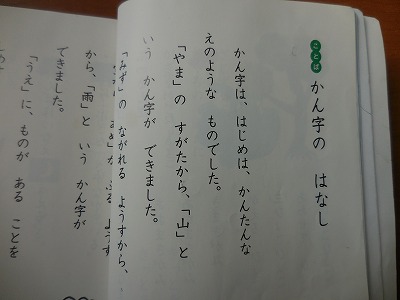 ことば
かん字の はなし
かん字は、はじめは、かんたんな
えのような ものでした。
「やま」の すがたから、「山」と
いう かん字が できました。
「みず」の ながれる ようすから、
ふる ようす
から、「雨」と いう かん字が
できました。
「うえ」に、ものが ある ことを